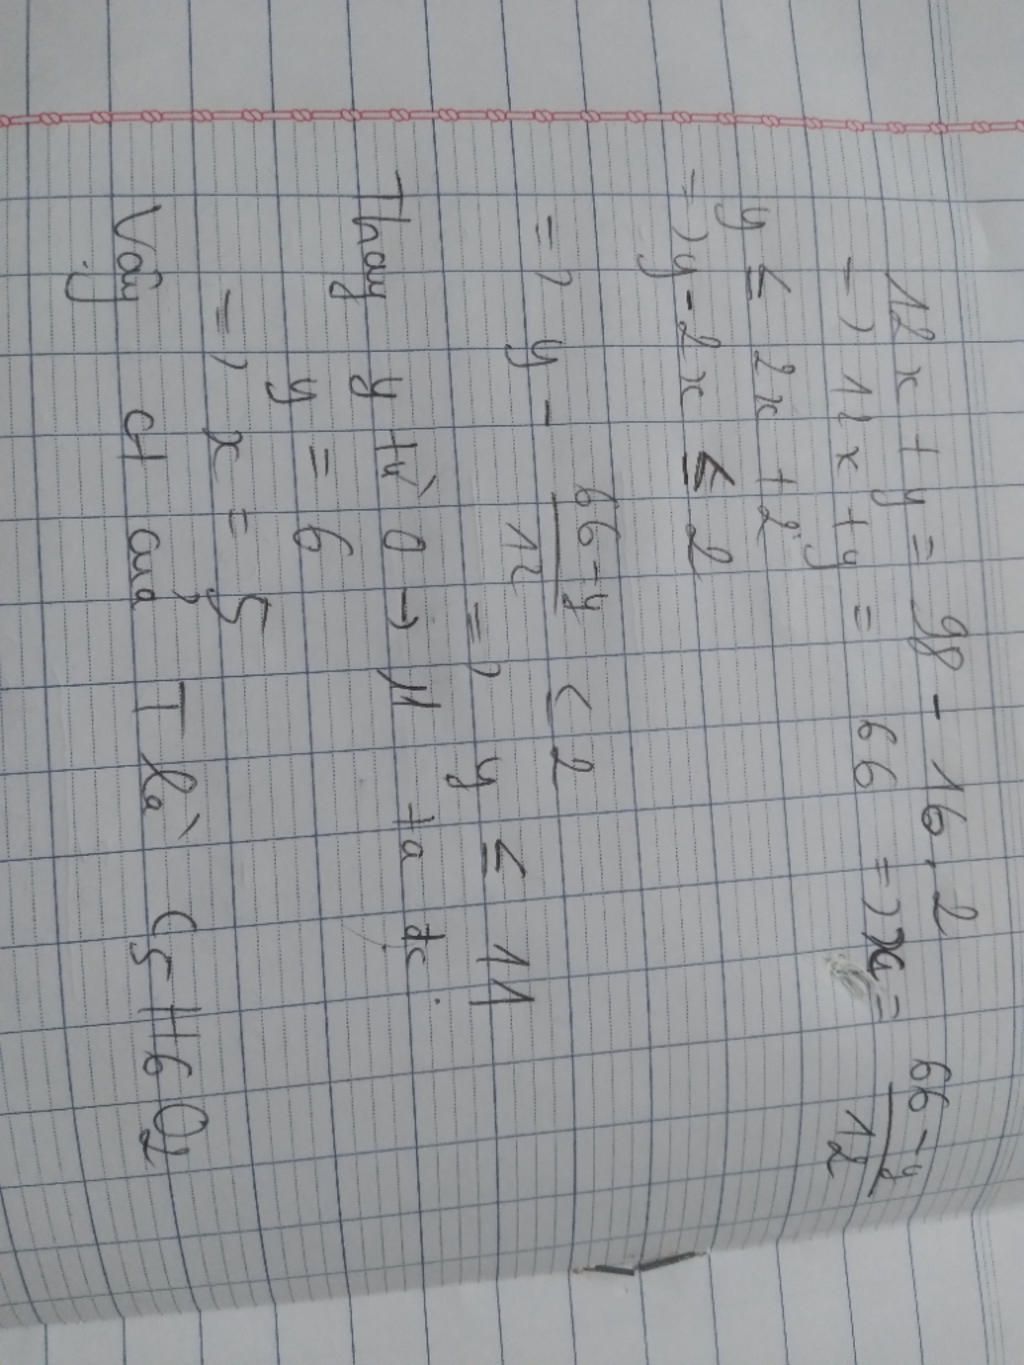 12x + y = 98 - 16.2
-) 12x + y = 66 =) x = 66 - y / 12
y ≤ 2x + 2
=) y - 2x ≤ 2
=) y - 66 - y / 12 ≤ 2
=) y ≤ 11
Thay y từ 0 -> 11 ta đc:
y = 6
=) x = 5
Vậy CT của T là C5H6O2